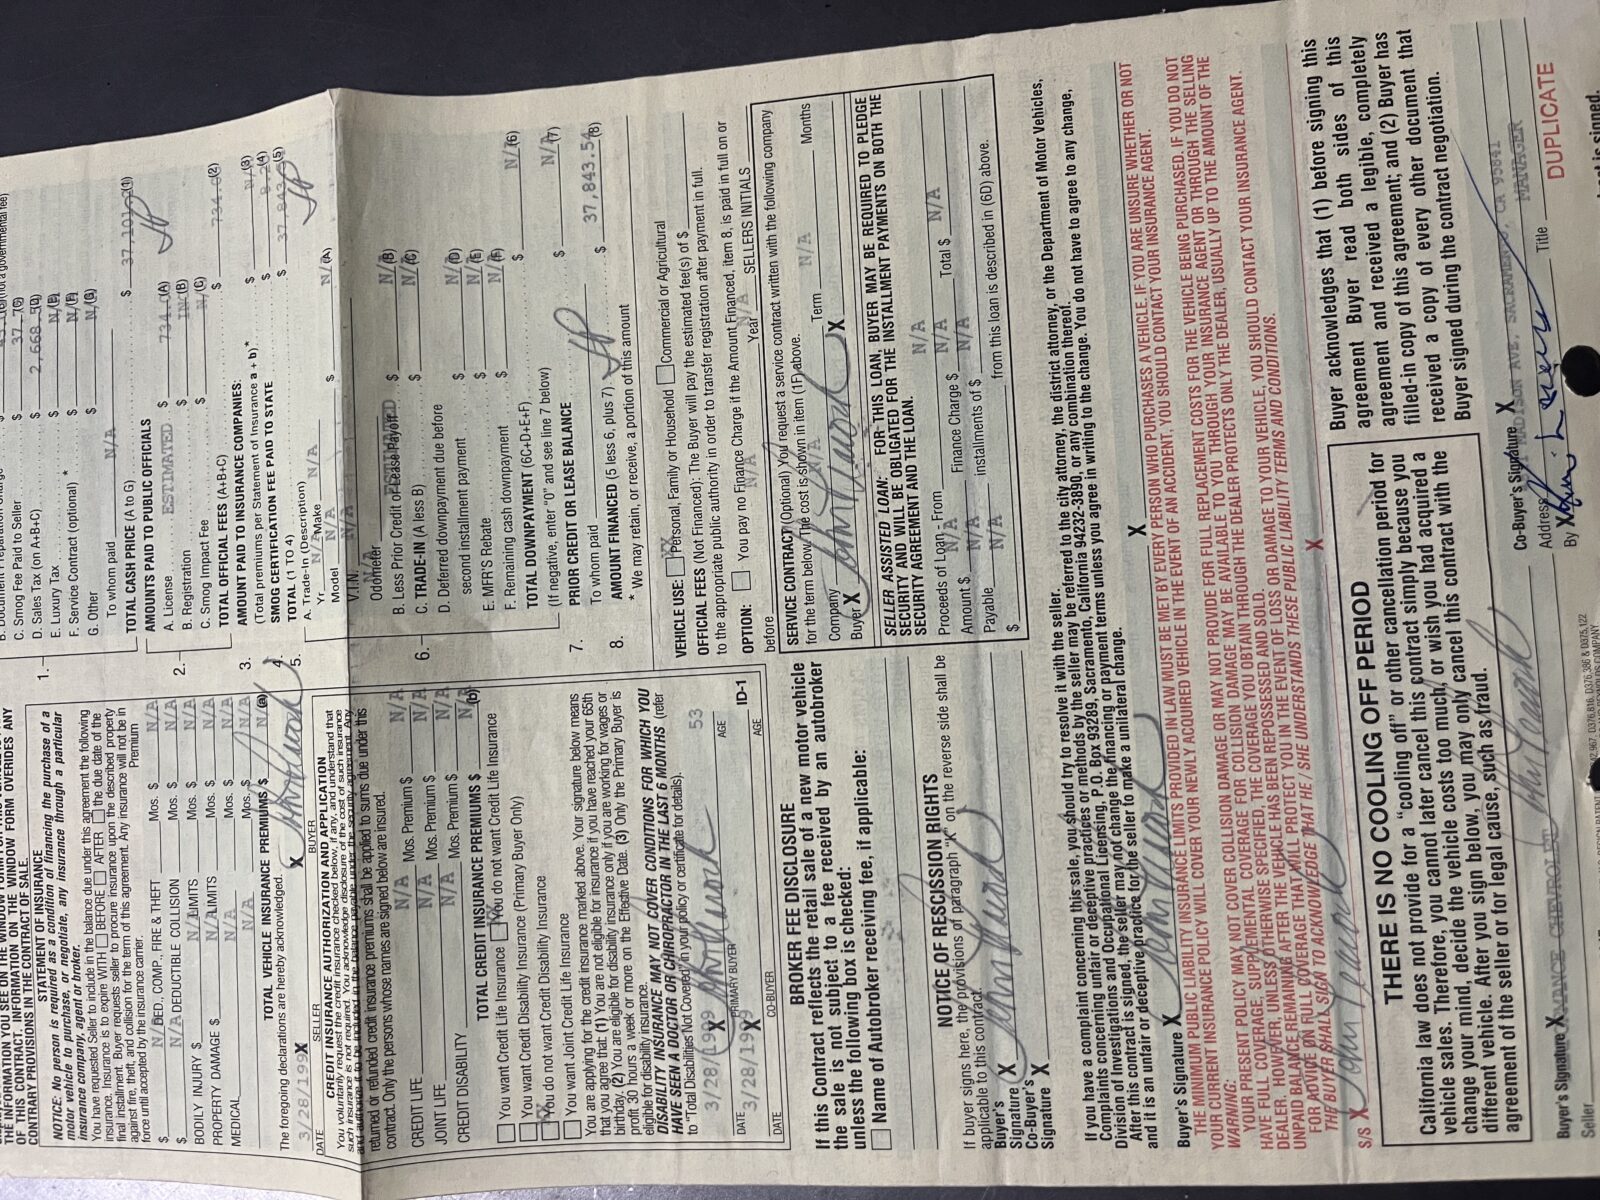 THE INFORMATION YOU SEE ON THE WINDOW FORM FOR THIS VEHICLE IS
INFORMATION ON THE WINDOW FORM OVERRIDES ANY
CONTRARY PROVISIONS IN THE CONTRACT OF SALE.
STATEMENT OF INSURANCE
NOTICE: No person is required as a condition of financing the purchase of a
motor vehicle to purchase, or negotiate, any insurance through a particular
insurance company, agent or broker.
You have requested Seller to include in the balance due under this agreement the following
insurance. Insurance is to expire WITH BEFORE AFTER the due date of the
final installment. Buyer requests seller to procure insurance upon the described property
against fire, theft, and collision for the term of this agreement. Any insurance will not be in
force until accepted by the insurance carrier. Premium
$ N/A DED., COMP., FIRE & THEFT Mos. $ N/A
$ N/A DEDUCTIBLE COLLISION Mos. $ N/A
BODILY INJURY $ N/A LIMITS Mos. $ N/A
PROPERTY DAMAGE $ N/A LIMITS Mos. $ N/A
MEDICAL N/A Mos. $ N/A
N/A Mos. $ N/A
TOTAL VEHICLE INSURANCE PREMIUMS $ N/A (a)
The foregoing declarations are hereby acknowledged.
3/28/199 X X
DATE SELLER BUYER
CREDIT INSURANCE AUTHORIZATION AND APPLICATION
You voluntarily request the credit insurance checked below, if any, and understand that
such insurance is not required. You acknowledge disclosure of the cost of such insurance
and authorize it to be included in the balance payable under the security agreement. Any
returned or refunded credit insurance premiums shall be applied to sums due under this
contract. Only the persons whose names are signed below are insured.
CREDIT LIFE N/A Mos. Premium $ N/A
JOINT LIFE N/A Mos. Premium $ N/A
CREDIT DISABILITY N/A Mos. Premium $ N/A
TOTAL CREDIT INSURANCE PREMIUMS $ N/A (b)
You want Credit Life Insurance XX You do not want Credit Life Insurance
You want Credit Disability Insurance (Primary Buyer Only)
XX You do not want Credit Disability Insurance
You want Joint Credit Life Insurance
You are applying for the credit insurance marked above. Your signature below means
that you agree that: (1) You are not eligible for insurance if you have reached your 65th
birthday. (2) You are eligible for disability insurance only if you are working for wages or
profit 30 hours a week or more on the Effective Date. (3) Only the Primary Buyer is
eligible for disability insurance.
DISABILITY INSURANCE MAY NOT COVER CONDITIONS FOR WHICH YOU
HAVE SEEN A DOCTOR OR CHIROPRACTOR IN THE LAST 6 MONTHS (refer
to "Total Disabilities Not Covered" in your policy or certificate for details).
3/28/199 X 53
DATE PRIMARY BUYER AGE
3/28/199 X
DATE CO-BUYER AGE
ID-1
BROKER FEE DISCLOSURE
If this Contract reflects the retail sale of a new motor vehicle
the sale is not subject to a fee received by an autobroker
unless the following box is checked:
Name of Autobroker receiving fee, if applicable:
NOTICE OF RESCISSION RIGHTS
If buyer signs here, the provisions of paragraph "K" on the reverse side shall be
applicable to this contract.
Buyer's
Signature X
Co-Buyer's
Signature X
C. Smog Fee Paid to Seller $ (C)
D. Sales Tax (on A+B+C) $ 2,668.50 (D)
E. Luxury Tax $ N/A (E)
F. Service Contract (optional) * $ N/A (F)
G. Other $ N/A (G)
To whom paid N/A
1. TOTAL CASH PRICE (A to G) $ (1)
AMOUNTS PAID TO PUBLIC OFFICIALS
A. License ESTIMATED $ (A)
B. Registration $ (B)
C. Smog Impact Fee $ (C)
2. TOTAL OFFICIAL FEES (A+B+C) $ (2)
3. AMOUNT PAID TO INSURANCE COMPANIES:
(Total premiums per Statement of Insurance a + b) * $ N/A (3)
4. SMOG CERTIFICATION FEE PAID TO STATE $ (4)
5. TOTAL (1 TO 4) $ (5)
A. Trade-In (Description)
Yr. N/A Make N/A
Model N/A $ N/A (A)
V.I.N.
Odometer N/A
B. Less Prior Credit or Lease Payoff ESTIMATED $ N/A (B)
C. TRADE-IN (A less B) $ N/A (C)
D. Deferred downpayment due before
second installment payment $ N/A (D)
E. MFR'S Rebate $ N/A (E)
F. Remaining cash downpayment $ N/A (F)
6. TOTAL DOWNPAYMENT (6C+D+E+F) $ N/A (6)
(If negative, enter "0" and see line 7 below)
7. PRIOR CREDIT OR LEASE BALANCE $ N/A (7)
To whom paid
8. AMOUNT FINANCED (5 less 6, plus 7) $ 37,843.54 (8)
* We may retain, or receive, a portion of this amount
VEHICLE USE: XX Personal, Family or Household Commercial or Agricultural
OFFICIAL FEES (Not Financed): The Buyer will pay the estimated fee(s) of $
to the appropriate public authority in order to transfer registration after payment in full.
OPTION: You pay no Finance Charge if the Amount Financed, item 8, is paid in full on or
before N/A Year N/A SELLERS INITIALS
SERVICE CONTRACT (Optional) You request a service contract written with the following company
for the term below. The cost is shown in item (1F) above.
Company N/A Term N/A Months
Buyer X X
SELLER ASSISTED LOAN: FOR THIS LOAN, BUYER MAY BE REQUIRED TO PLEDGE
SECURITY AND WILL BE OBLIGATED FOR THE INSTALLMENT PAYMENTS ON BOTH THE
SECURITY AGREEMENT AND THE LOAN.
Proceeds of Loan From N/A
Amount $ N/A Finance Charge $ N/A Total $ N/A
Payable N/A installments of $ N/A
$ from this loan is described in (6D) above.
If you have a complaint concerning this sale, you should try to resolve it with the seller.
Complaints concerning unfair or deceptive practices or methods by the seller may be referred to the city attorney, the district attorney, or the Department of Motor Vehicles,
Division of Investigations and Occupational Licensing, P.O. Box 93289, Sacramento, California 94232-3890, or any combination thereof.
After this contract is signed, the seller may not change the financing or payment terms unless you agree in writing to the change. You do not have to agree to any change,
and it is an unfair or deceptive practice for the seller to make a unilateral change.
Buyer's Signature X X
THE MINIMUM PUBLIC LIABILITY INSURANCE LIMITS PROVIDED IN LAW MUST BE MET BY EVERY PERSON WHO PURCHASES A VEHICLE. IF YOU ARE UNSURE WHETHER OR NOT
YOUR CURRENT INSURANCE POLICY WILL COVER YOUR NEWLY ACQUIRED VEHICLE IN THE EVENT OF AN ACCIDENT, YOU SHOULD CONTACT YOUR INSURANCE AGENT.
WARNING:
YOUR PRESENT POLICY MAY NOT COVER COLLISION DAMAGE OR MAY NOT PROVIDE FOR FULL REPLACEMENT COSTS FOR THE VEHICLE BEING PURCHASED. IF YOU DO NOT
HAVE FULL COVERAGE, SUPPLEMENTAL COVERAGE FOR COLLISION DAMAGE MAY BE AVAILABLE TO YOU THROUGH YOUR INSURANCE AGENT OR THROUGH THE SELLING
DEALER. HOWEVER, UNLESS OTHERWISE SPECIFIED, THE COVERAGE YOU OBTAIN THROUGH THE DEALER PROTECTS ONLY THE DEALER, USUALLY UP TO THE AMOUNT OF THE
UNPAID BALANCE REMAINING AFTER THE VEHICLE HAS BEEN REPOSSESSED AND SOLD.
FOR ADVICE ON FULL COVERAGE THAT WILL PROTECT YOU IN THE EVENT OF LOSS OR DAMAGE TO YOUR VEHICLE, YOU SHOULD CONTACT YOUR INSURANCE AGENT.
THE BUYER SHALL SIGN TO ACKNOWLEDGE THAT HE / SHE UNDERSTANDS THESE PUBLIC LIABILITY TERMS AND CONDITIONS.
S/S X X
THERE IS NO COOLING OFF PERIOD
California law does not provide for a "cooling off" or other cancellation period for
vehicle sales. Therefore, you cannot later cancel this contract simply because you
change your mind, decide the vehicle costs too much, or wish you had acquired a
different vehicle. After you sign below, you may only cancel this contract with the
agreement of the seller or for legal cause, such as fraud.
Buyer acknowledges that (1) before signing this
agreement Buyer read both sides of this
agreement and received a legible, completely
filled-in copy of this agreement; and (2) Buyer has
received a copy of every other document that
Buyer signed during the contract negotiation.
Buyer's Signature X Co-Buyer's Signature X
Seller CHEVROLET Address MADISON AVE. SACRAMENTO, CA 95841
By X Title MANAGER
DUPLICATE